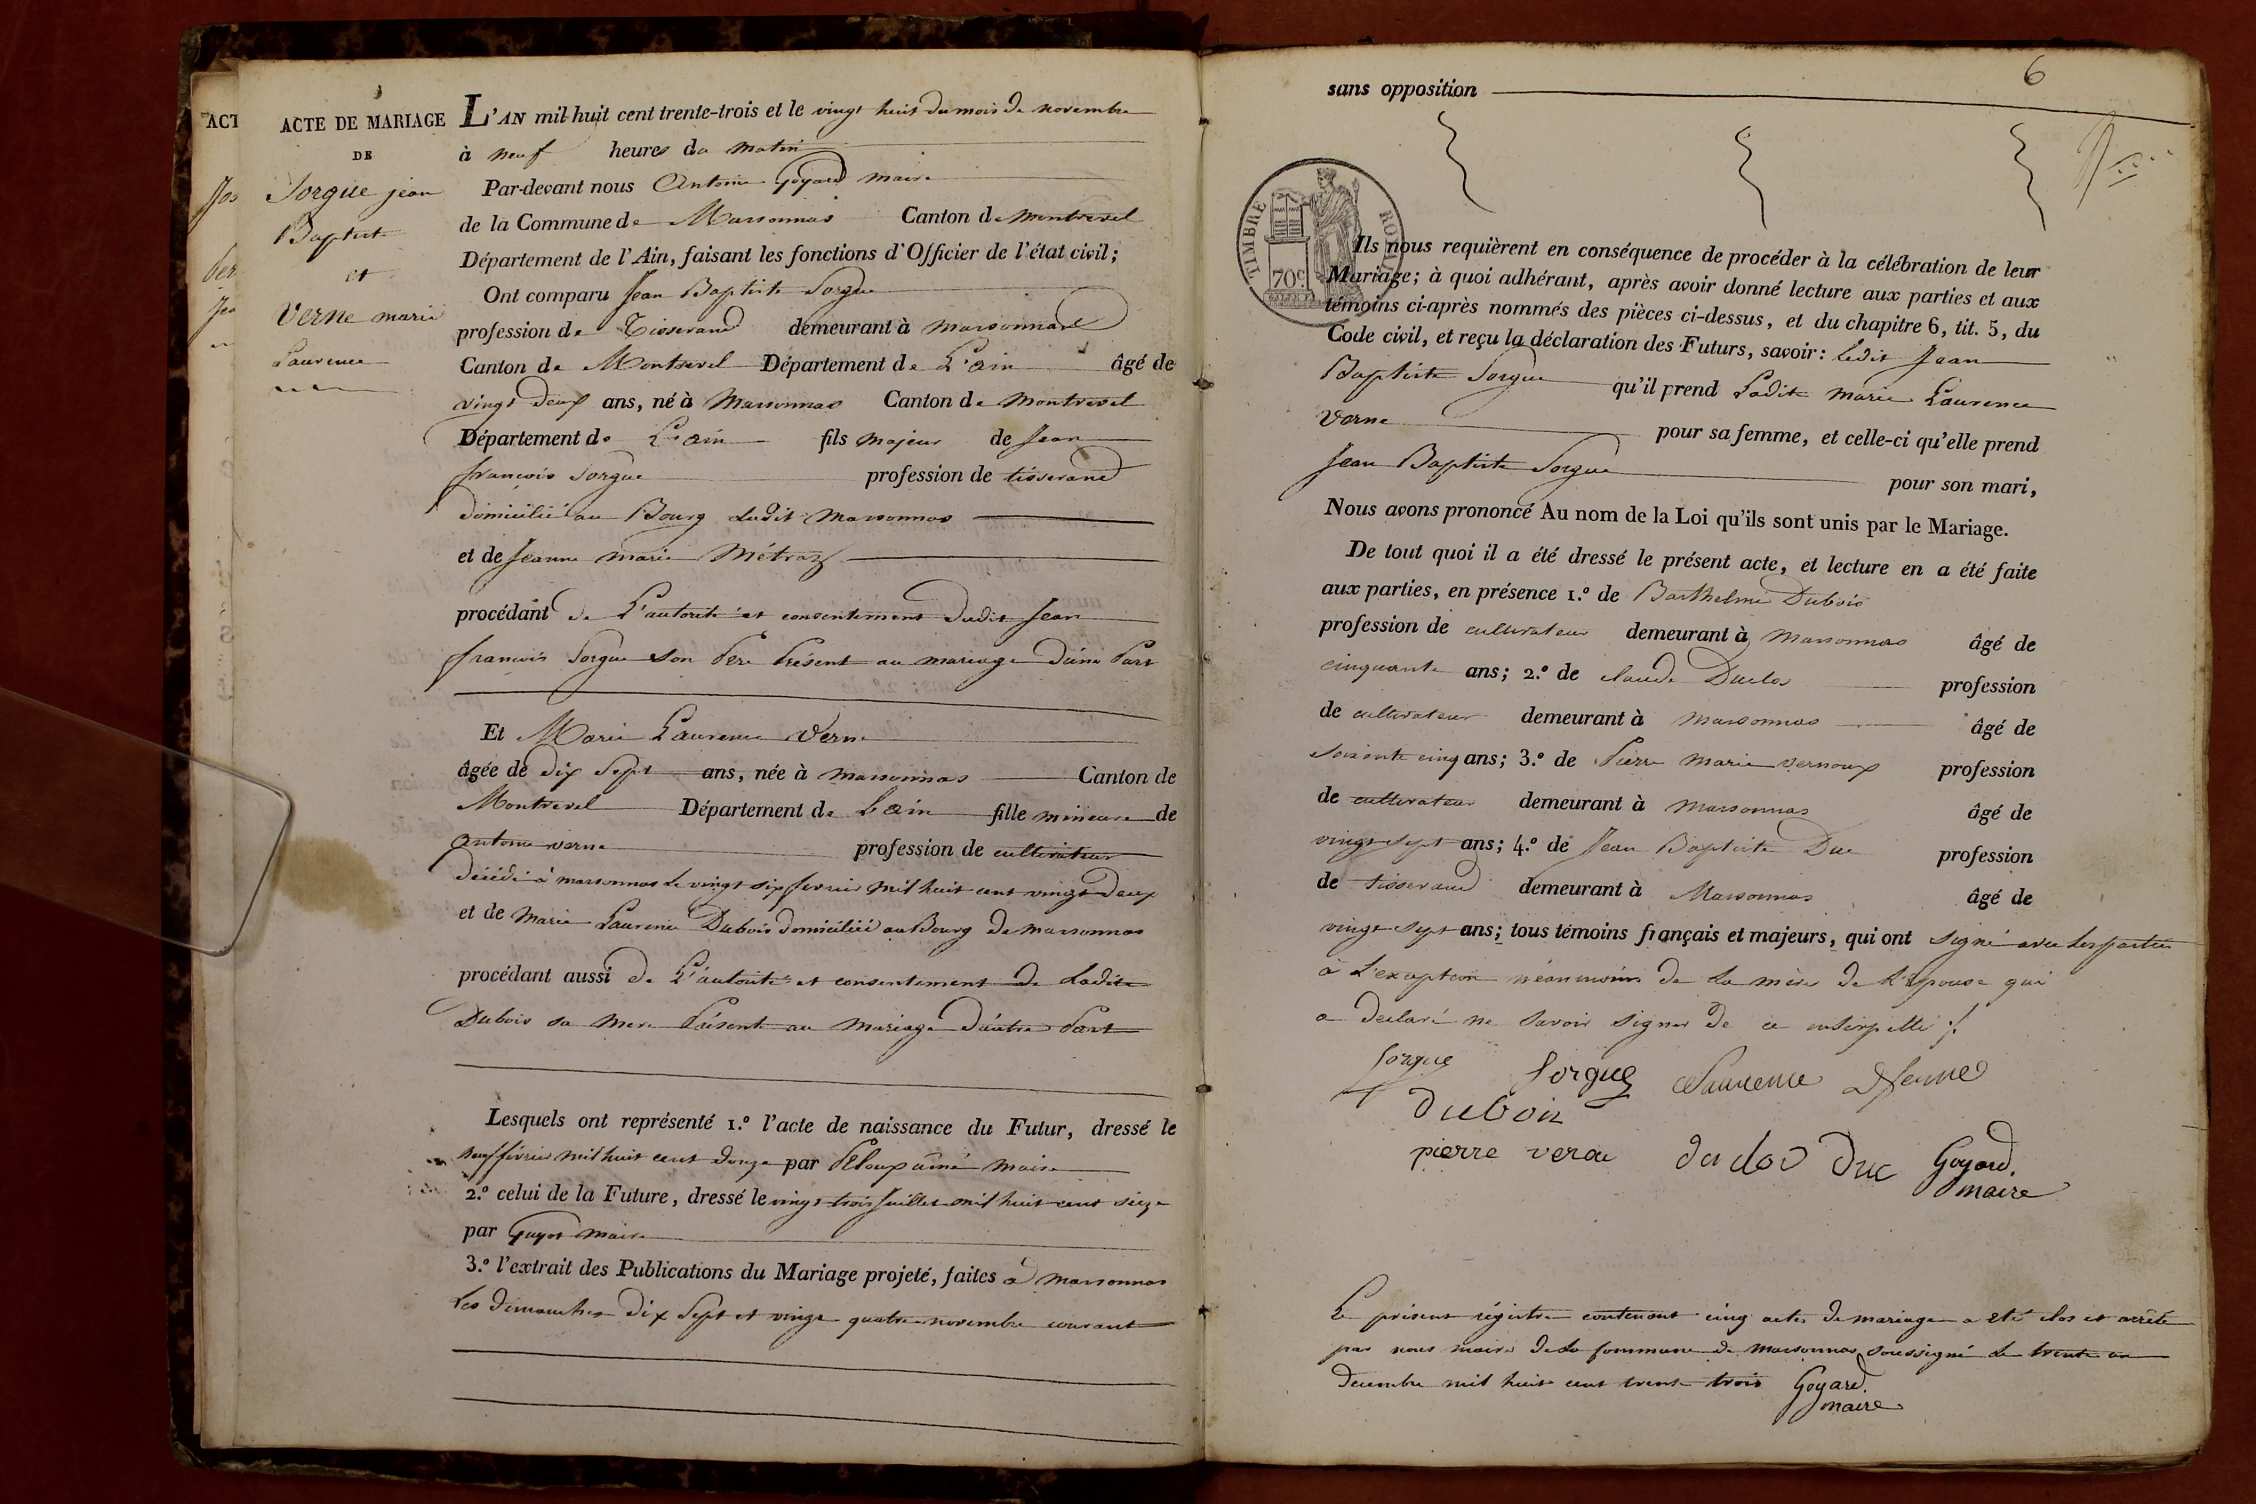 ACT
ACTE DE MARIAGE
DE
Sorgue jean
Baptiste
et
Verne marie
Laurence
L'AN mil huit cent trente-trois et le vingt huit du mois de novembre
à neuf heures du matin
Par-devant nous Antoine Goyard maire
de la Commune de Marsonnas Canton de montrevel
Département de l'Ain, faisant les fonctions d'Officier de l'état civil;
Ont comparu Jean Baptiste Sorgue
profession de Tisserand demeurant à marsonnas
Canton de Montrevel Département de L'ain âgé de
vingt deux ans, né à Marsonnas Canton de Montrevel
Département de L'ain fils majeur de Jean
françois Sorgue profession de tisserand
domicilié au Bourg dudit Marsonnas
et de Jeanne marie Métraz
procédant de L'autorité et consentement dudit Jean
françois Sorgue son Père Présent au mariage d'une Part
Et Marie Laurence Verne
âgée de dix Sept ans, née à marsonnas Canton de
Montrevel Département de L'ain fille mineure de
antoine verne profession de cultivateur
décédé à marsonnas le vingt six fevrier mil huit cent vingt deux
et de Marie Laurence Dubois domiciliée au Bourg de marsonnas
procédant aussi de L'autorité et consentement de Ladite
Dubois sa mere Présent au mariage d'autre Part
Lesquels ont représenté 1.º l'acte de naissance du Futur, dressé le
neuf février mil huit cent douze par maire
2.º celui de la Future, dressé le vingt trois Juillet mil huit cent seize
par Guyot maire
3.º l'extrait des Publications du Mariage projeté, faites à marsonnas
Les dimanches dix Sept et vingt quatre novembre courant
6
sans opposition
TIMBRE ROYAL
70 c
Ils nous requièrent en conséquence de procéder à la célébration de leur
Mariage; à quoi adhérant, après avoir donné lecture aux parties et aux
témoins ci-après nommés des pièces ci-dessus, et du chapitre 6, tit. 5, du
Code civil, et reçu la déclaration des Futurs, savoir: Ledit Jean
Baptiste Sorgue qu'il prend Ladite marie Laurence
Verne pour sa femme, et celle-ci qu'elle prend
Jean Baptiste Sorgue pour son mari,
Nous avons prononcé Au nom de la Loi qu'ils sont unis par le Mariage.
De tout quoi il a été dressé le présent acte, et lecture en a été faite
aux parties, en présence 1.º de Barthelmi Dubois
profession de cultivateur demeurant à marsonnas âgé de
cinquante ans; 2.º de claude Duclos profession
de cultivateur demeurant à marsonnas âgé de
soixante cinq ans; 3.º de Pierre Marie vernoux profession
de cultivateur demeurant à marsonnas âgé de
vingt sept ans; 4.º de Jean Baptiste Duc profession
de tisserand demeurant à Marsonnas âgé de
vingt sept ans; tous témoins français et majeurs, qui ont signé avec les parties
à L'exception néanmoins de La mère de L'épouse qui
a declaré ne savoir signer de ce
Sorgue Sorgue Laurence
duboiz
pierre duclos Duc Goyard
maire
Le présent régistre contenant cinq actes de mariage a eté clos et arrêté
par nous maire de La Commune de marsonnas soussigné Le trente un
decembre mil huit cent trente trois Goyard
maire